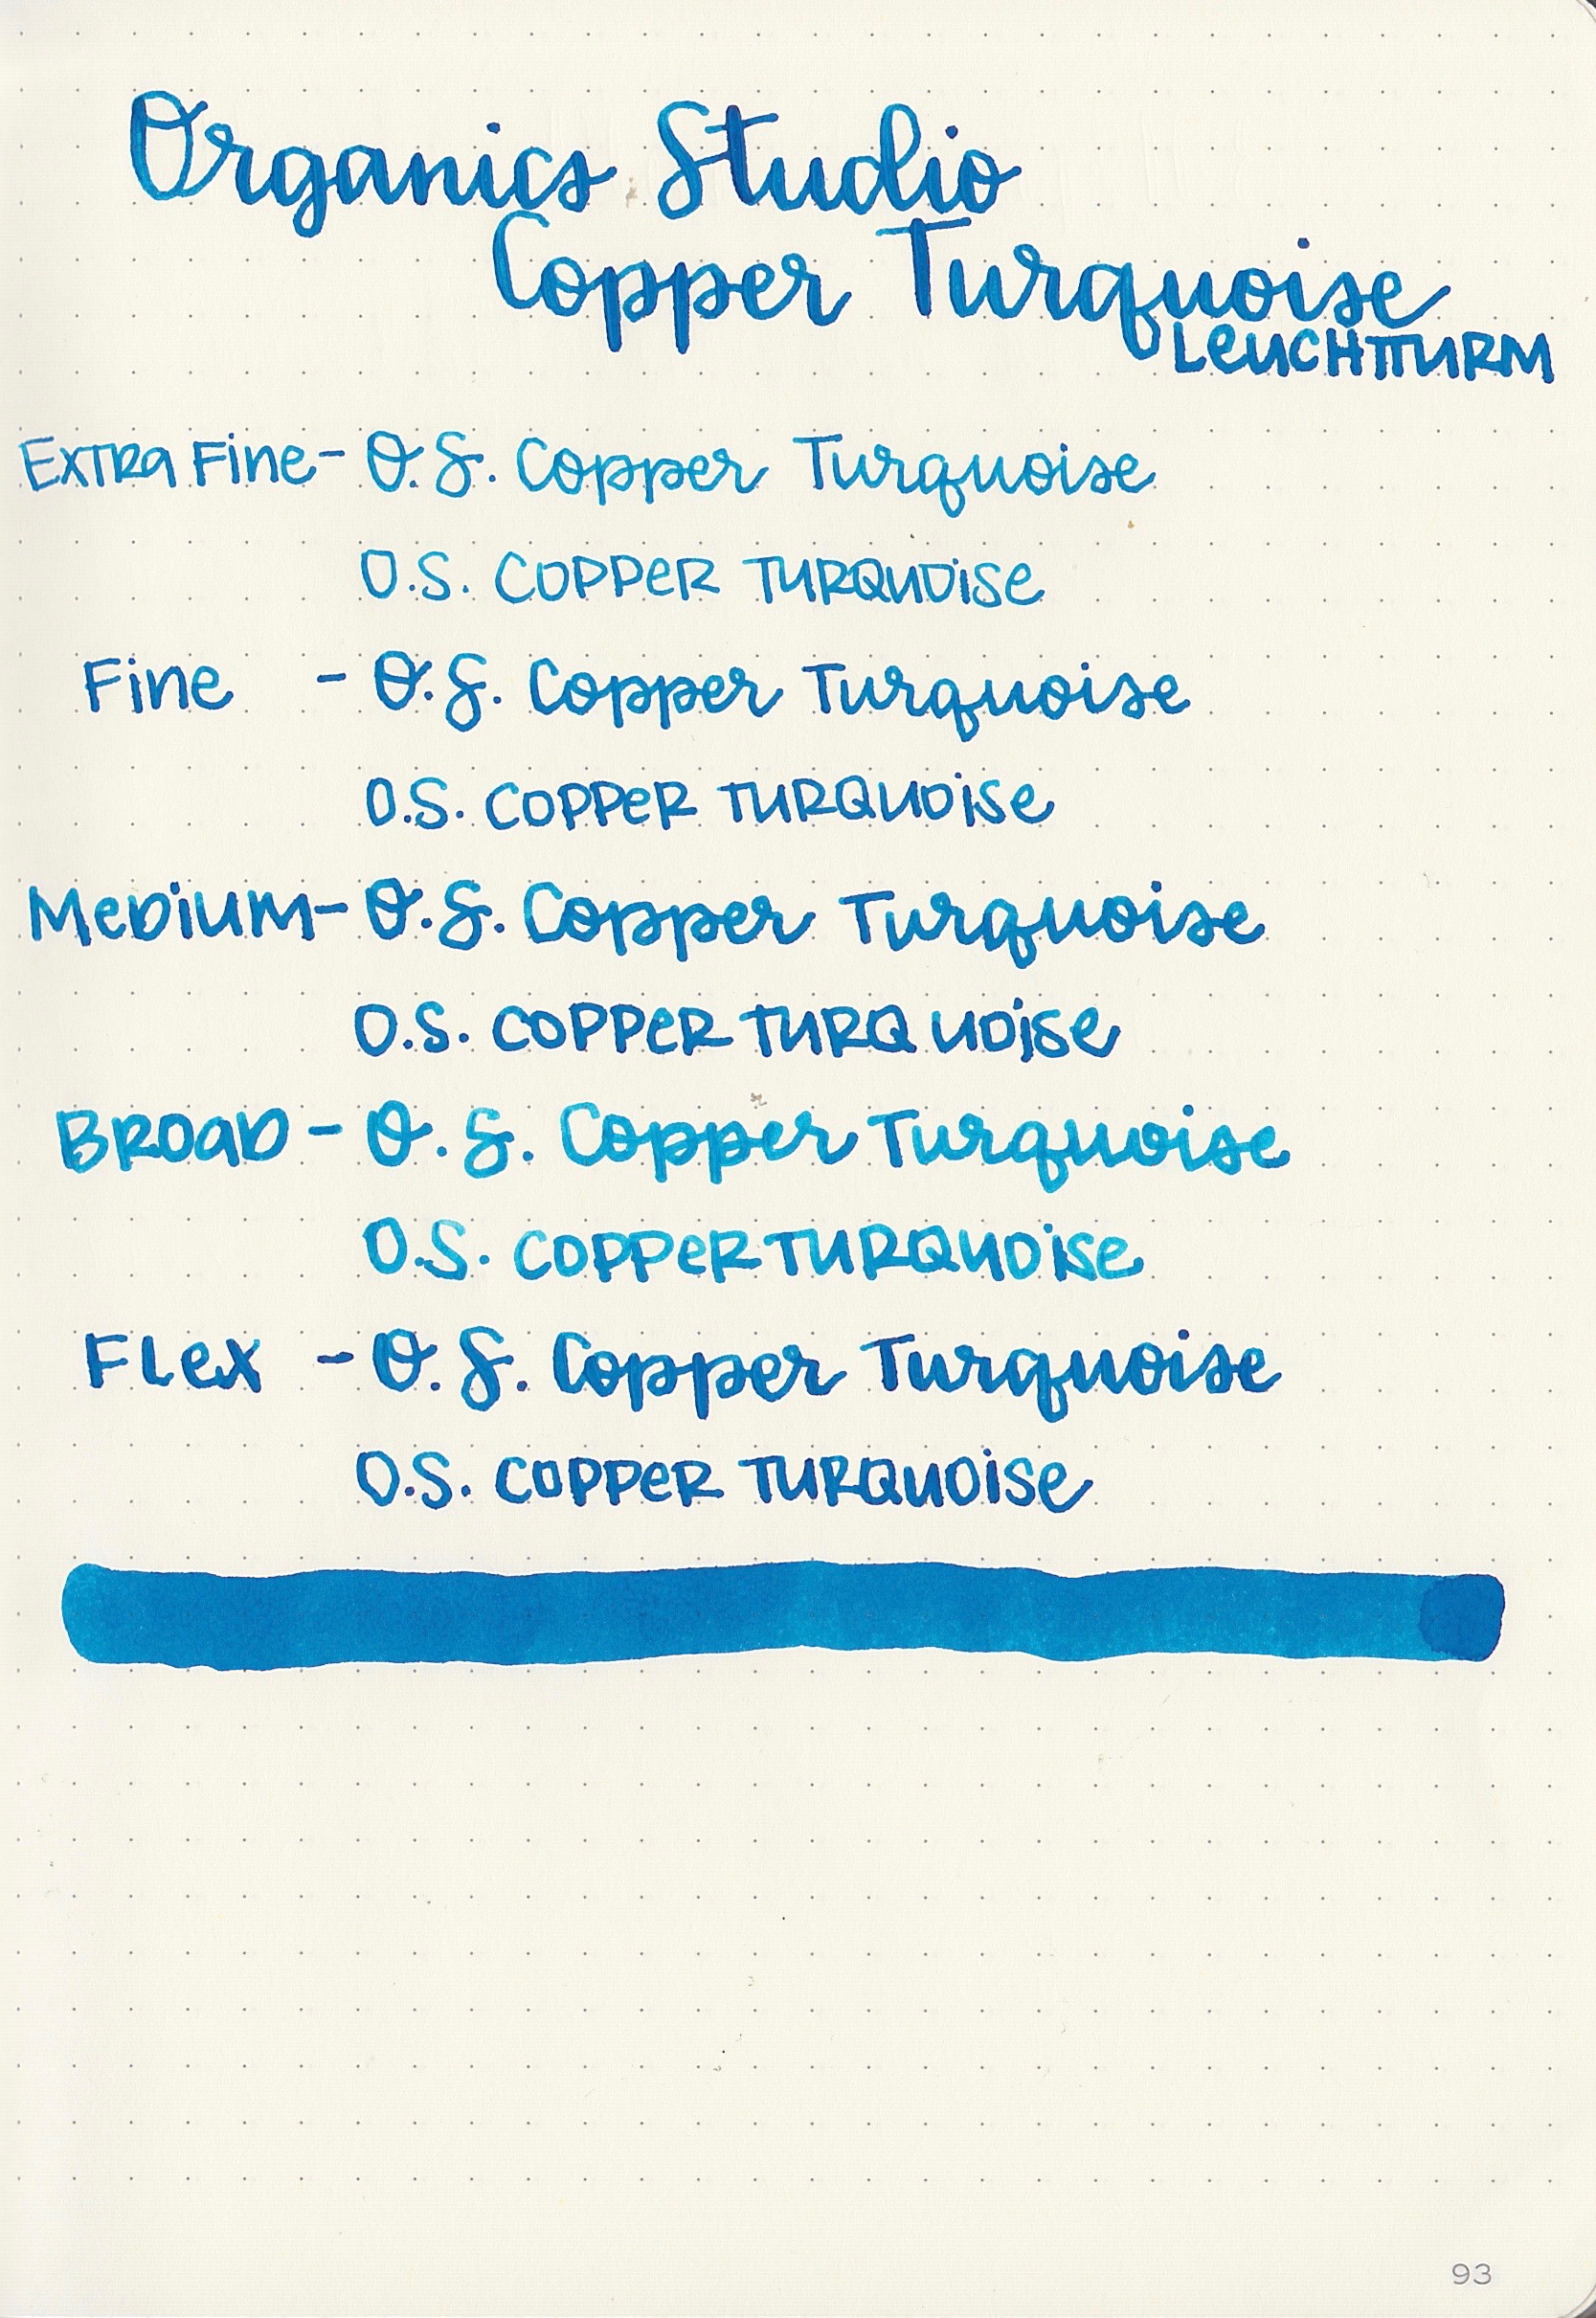 Organics Studio
Copper Turquoise
LEUCHTTURM
Extra Fine - O.S. Copper Turquoise
O.S. COPPER TURQUOISE
Fine - O.S. Copper Turquoise
O.S. COPPER TURQUOISE
Medium - O.S. Copper Turquoise
O.S. COPPER TURQUOISE
Broad - O.S. Copper Turquoise
O.S. COPPER TURQUOISE
Flex - O.S. Copper Turquoise
O.S. COPPER TURQUOISE
93